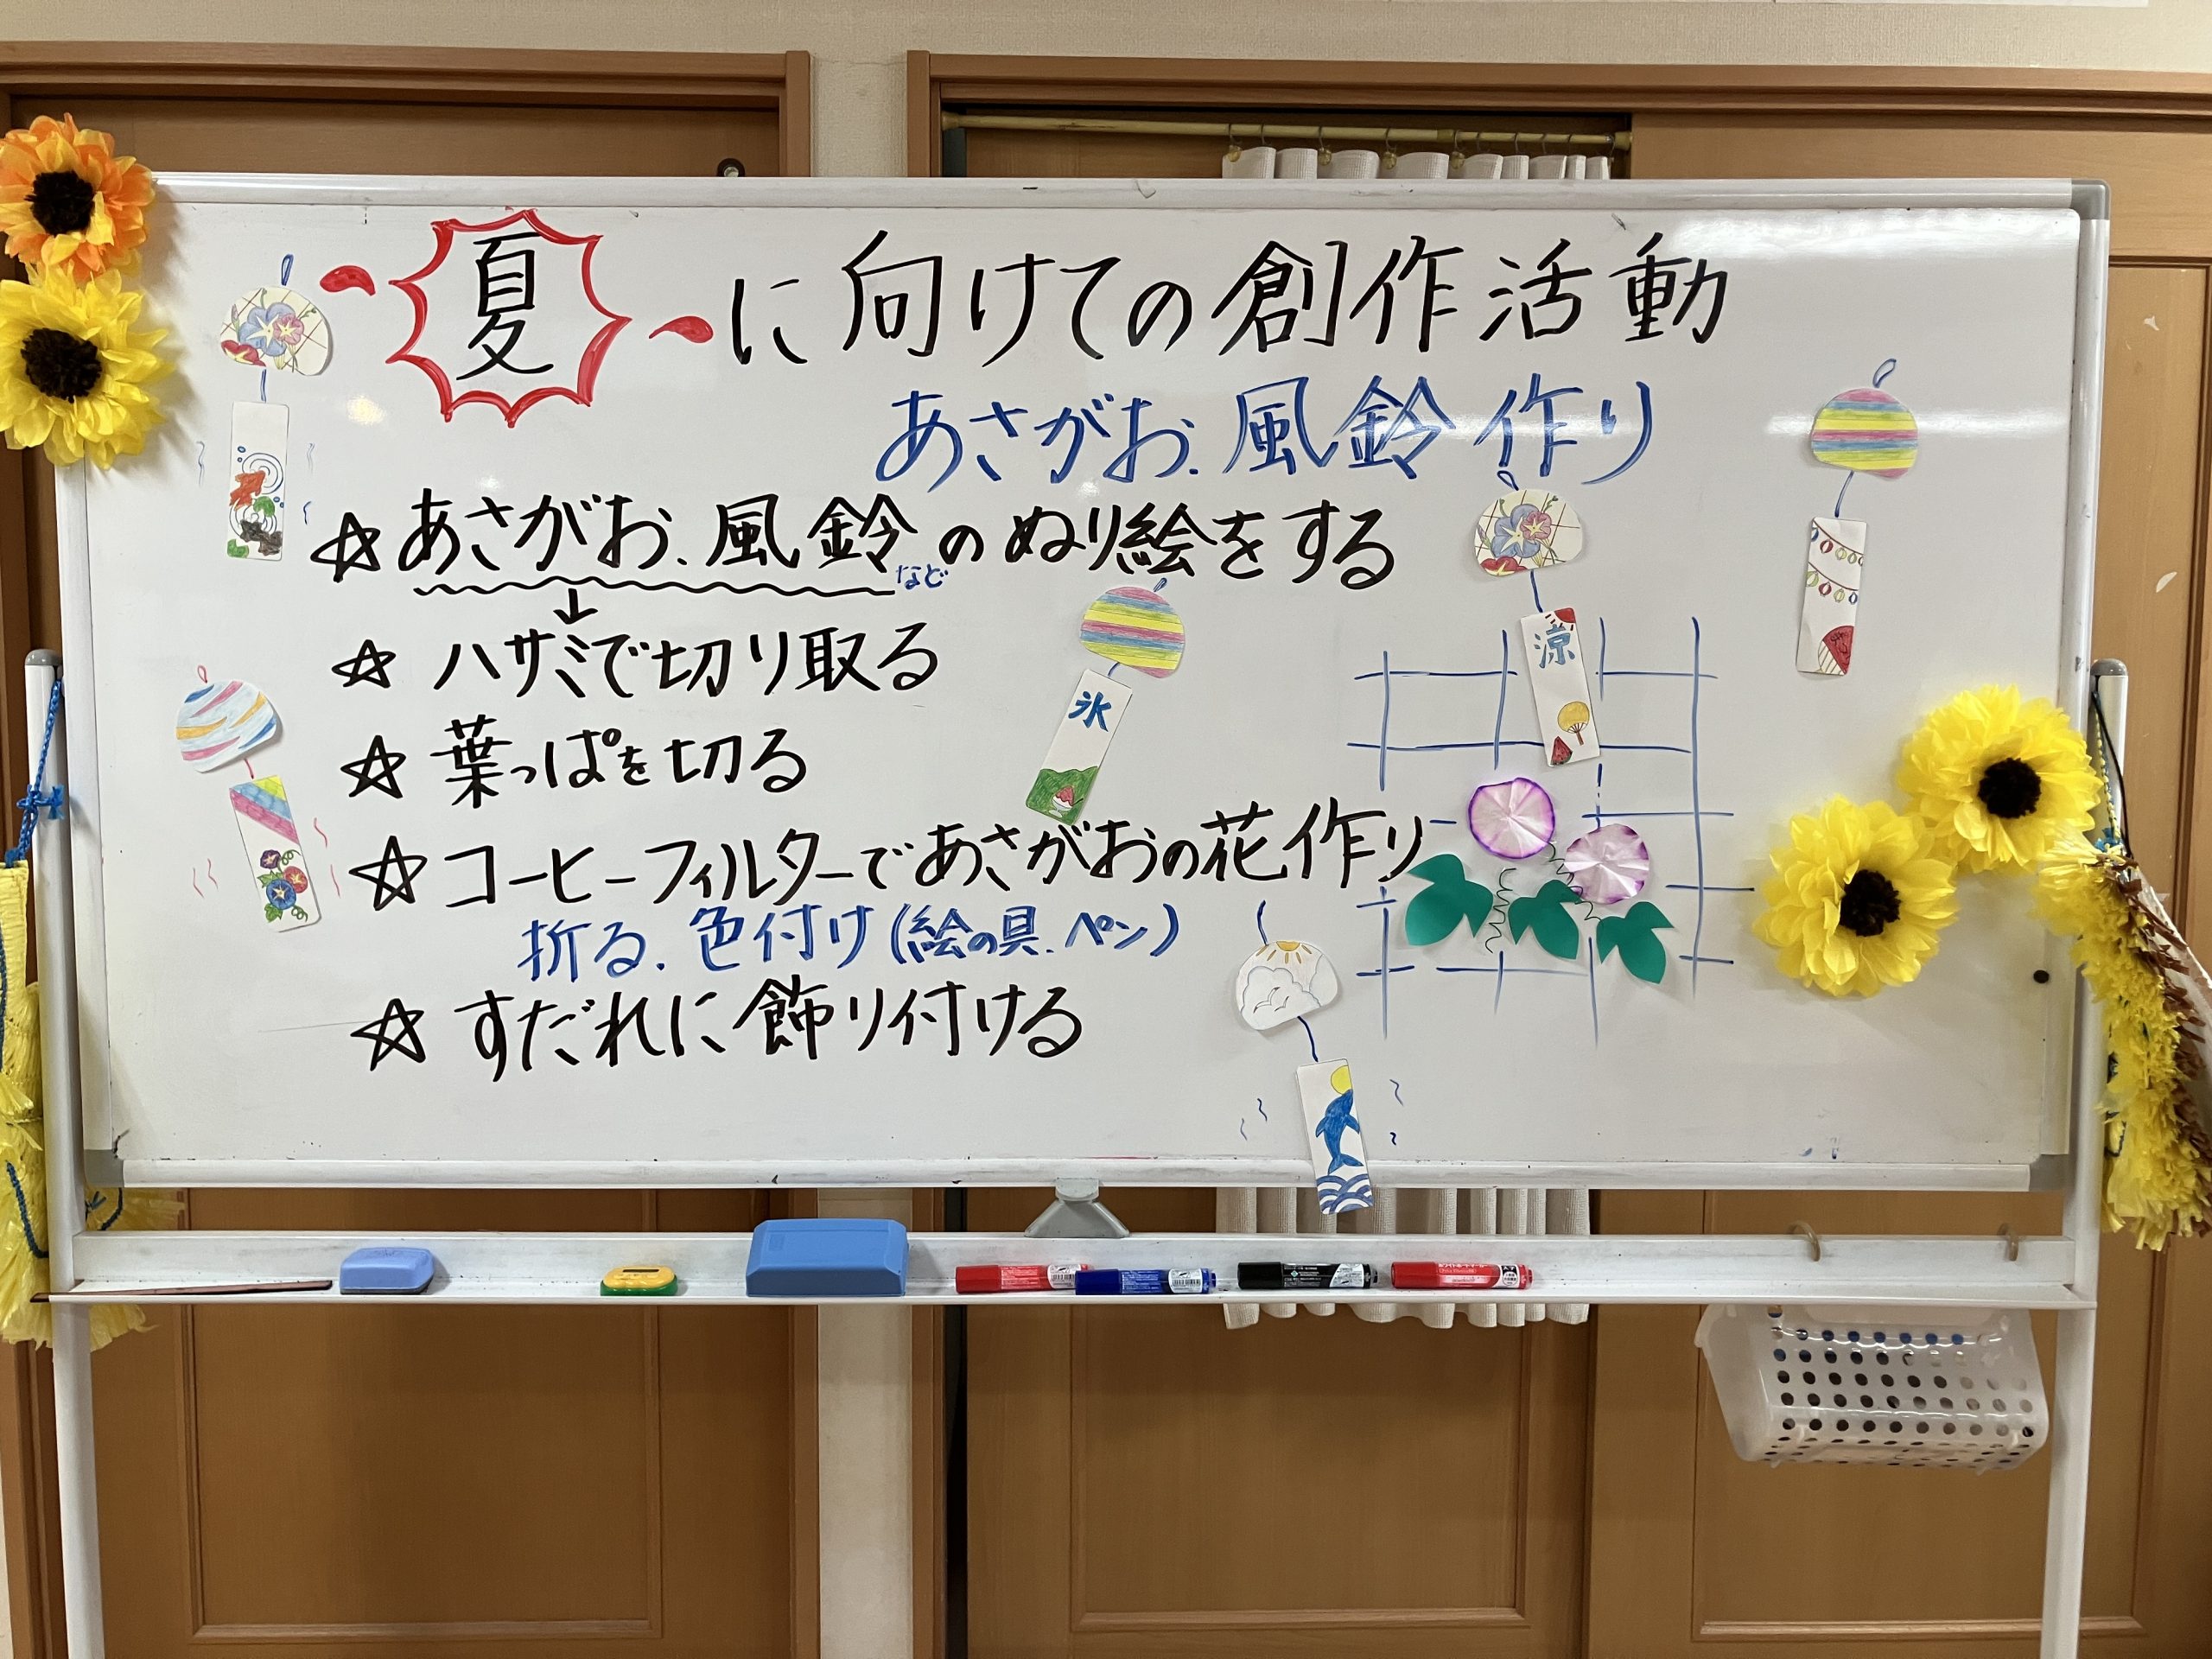 夏に向けての創作活動
あさがお、風鈴作り
☆あさがお、風鈴などのぬり絵をする
↓
☆ハサミで切り取る
☆葉っぱを切る
☆コーヒーフィルターであさがおの花作り
折る、色付け(絵の具、ペン)
☆すだれに飾り付ける
氷
涼